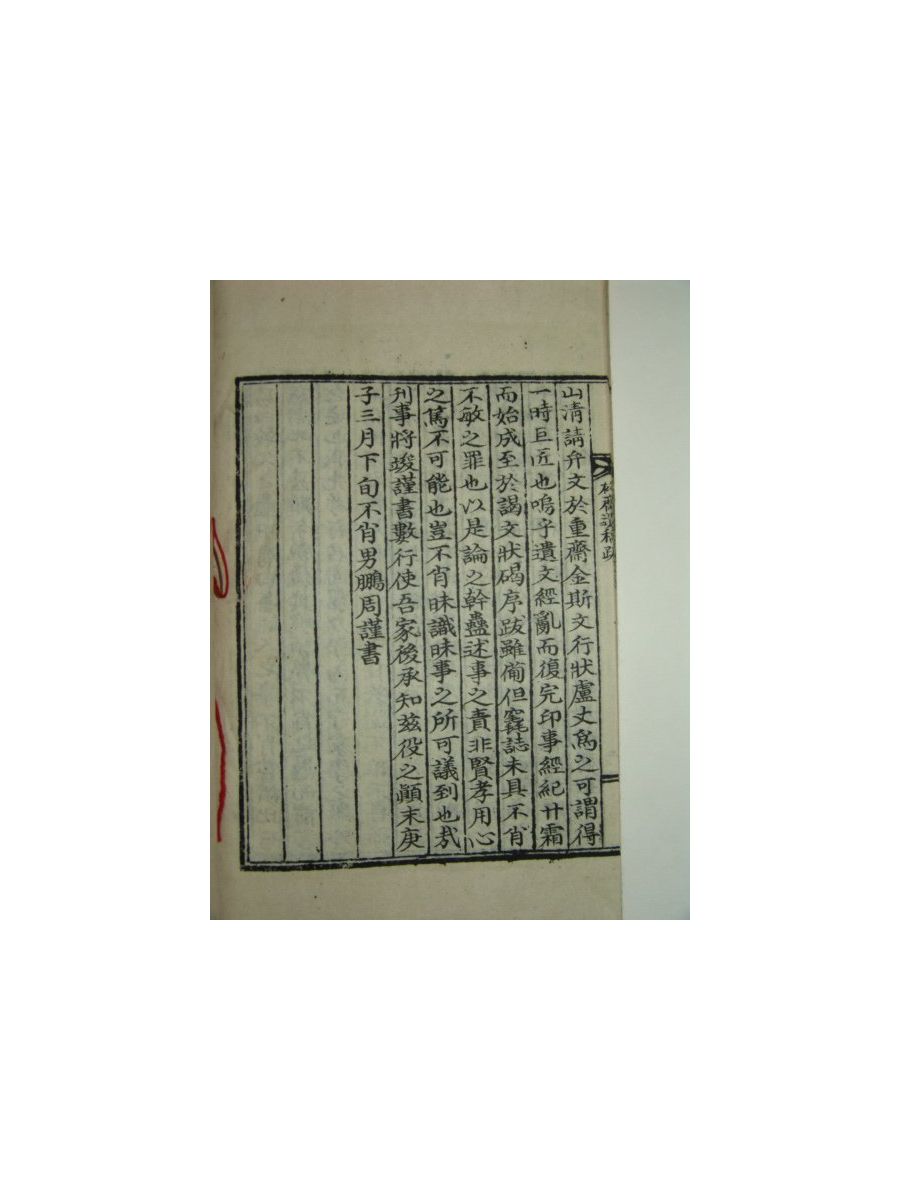 山清請弁文於重齋金斯文行狀盧丈爲之可謂得
一時巨匠也嗚乎遺文經亂而復完印事經紀廿霜
而始成至於謁文狀碣序跋雖備但窆誌未具不肖
不敏之罪也以是論之幹蠱述事之責非賢孝用心
之篤不可能也豈不肖昧識昧事之所可議到也哉
刊事將竣謹書數行使吾家後承知茲役之顚末庚
子三月下旬不肖男鵬周謹書